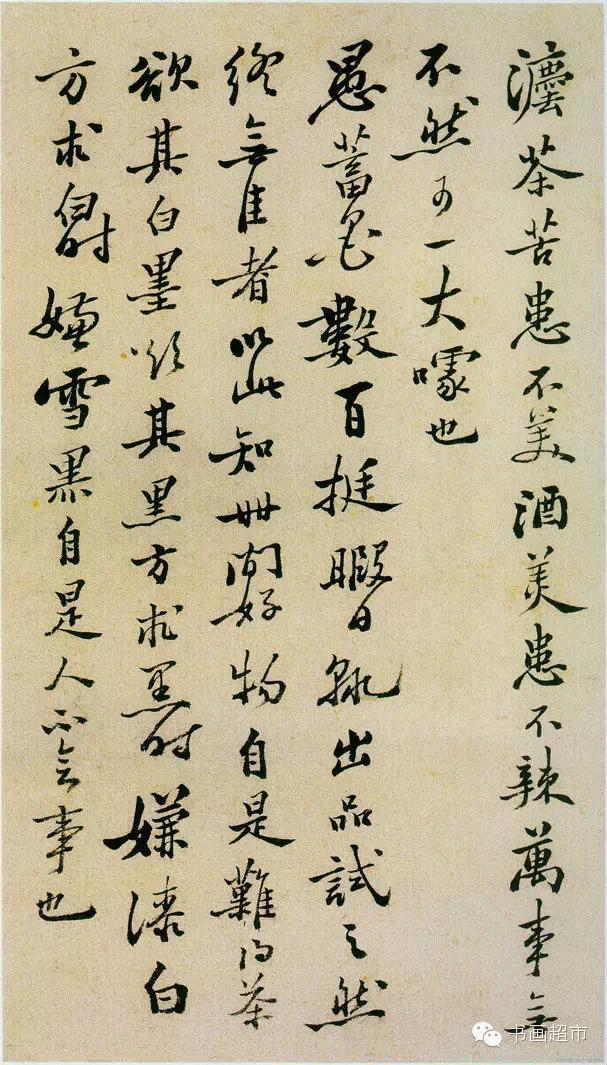 灋茶苦患不美酒美患不辣萬事無
不然可一大噱也
愚蓄墨數百挺暇日輒出品試之然
終無佳者以此知世間好物自是難得茶
欲其白墨欲其黑方求黑時嫌漆白
方求白時嫌雪黑自是人不會事也
书画超市